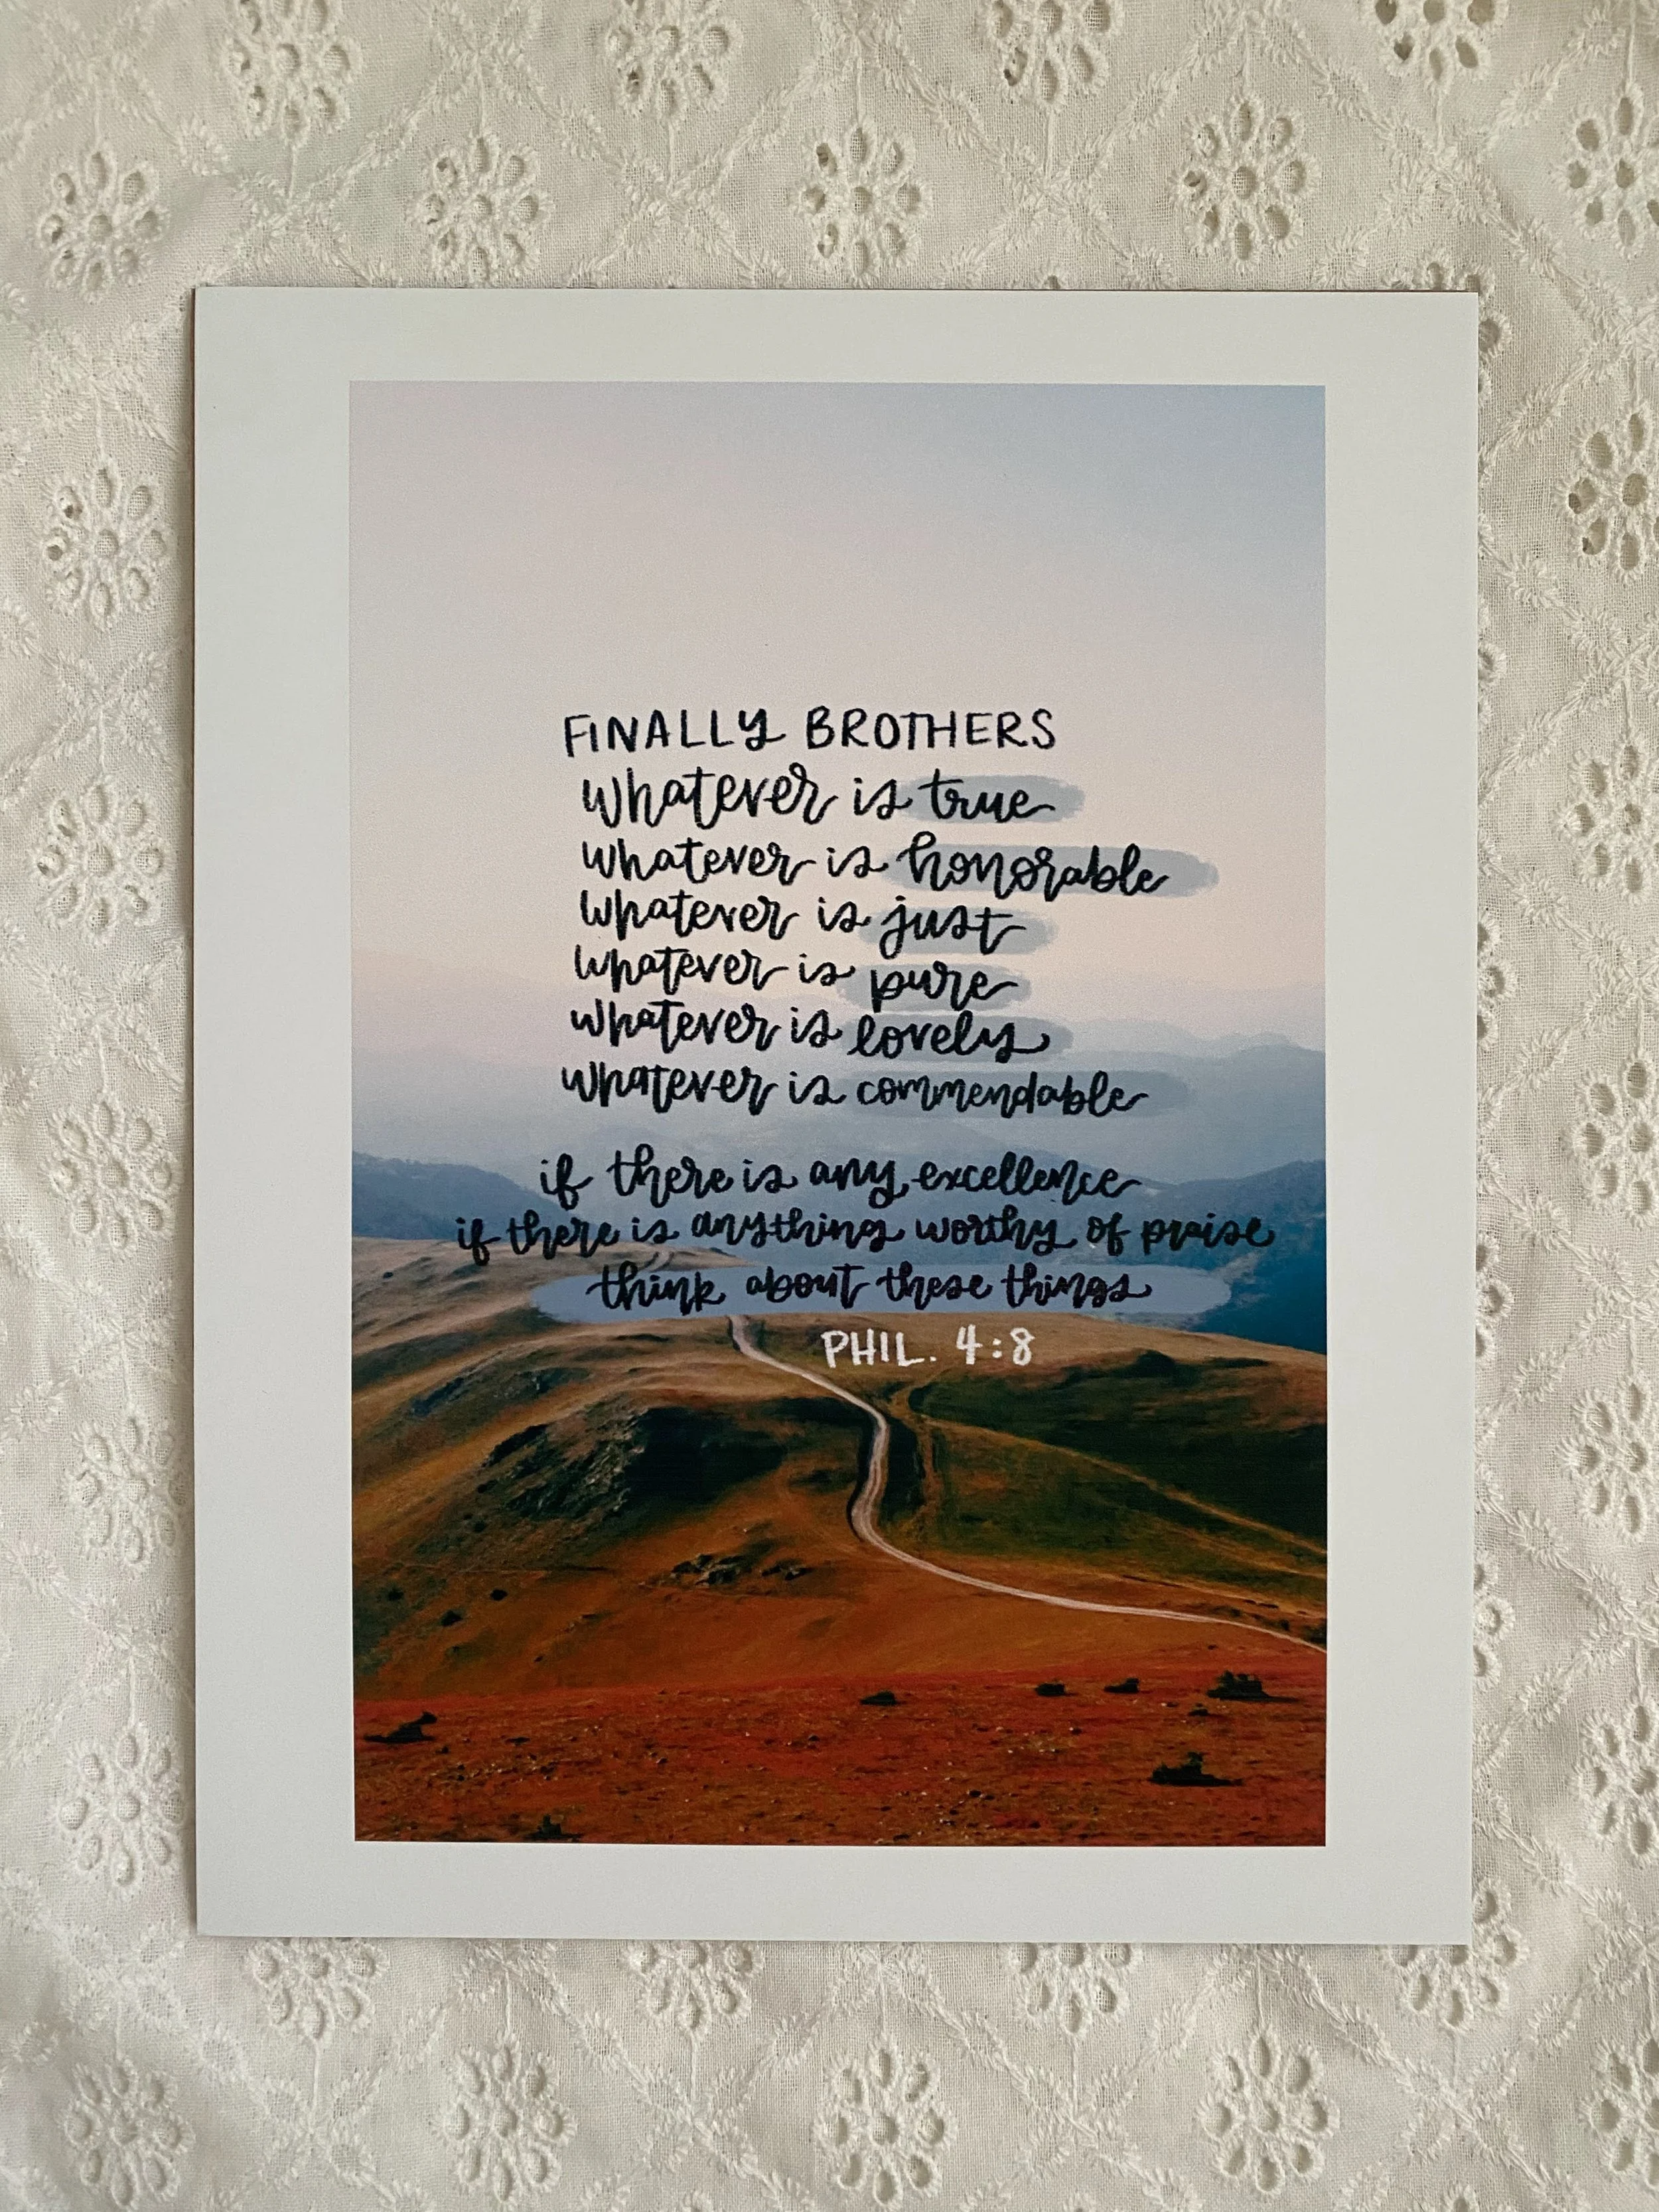 FINALLY BROTHERS
whatever is true
whatever is honorable
whatever is just
whatever is pure
whatever is lovely
whatever is commendable
if there is any excellence
if there is anything worthy of praise
think about these things
PHIL. 4:8